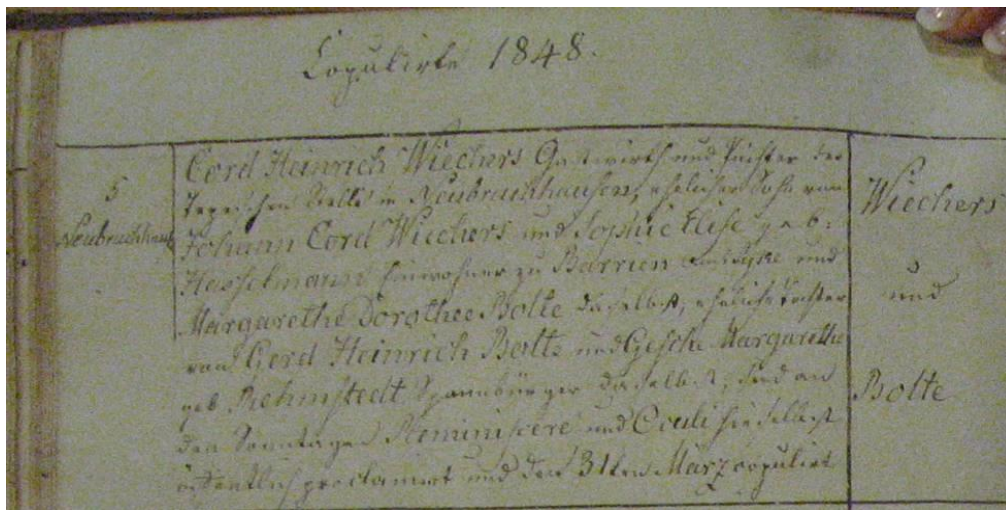 Copulirte 1848.
5
Neubruchhausen
Cord Heinrich Wiechers Gastwirth und Pächter der
Stelle in Neubruchhausen, ehelicher Sohn von
Johann Cord Wiechers und Sophie Elise geb.
Hasselmann Einwohner zu Barrien Amt Syke und
Margarethe Dorothee Bolte daselbst, eheliche Tochter
von Gerd Heinrich Bolte und Gesche Margarethe
geb. Rehmstedt daselbst, sind an
den Sonntagen Reminiscere und Oculi hieselbst
öffentlich proclamirt und den 31ten März copulirt
Wiechers
und
Bolte